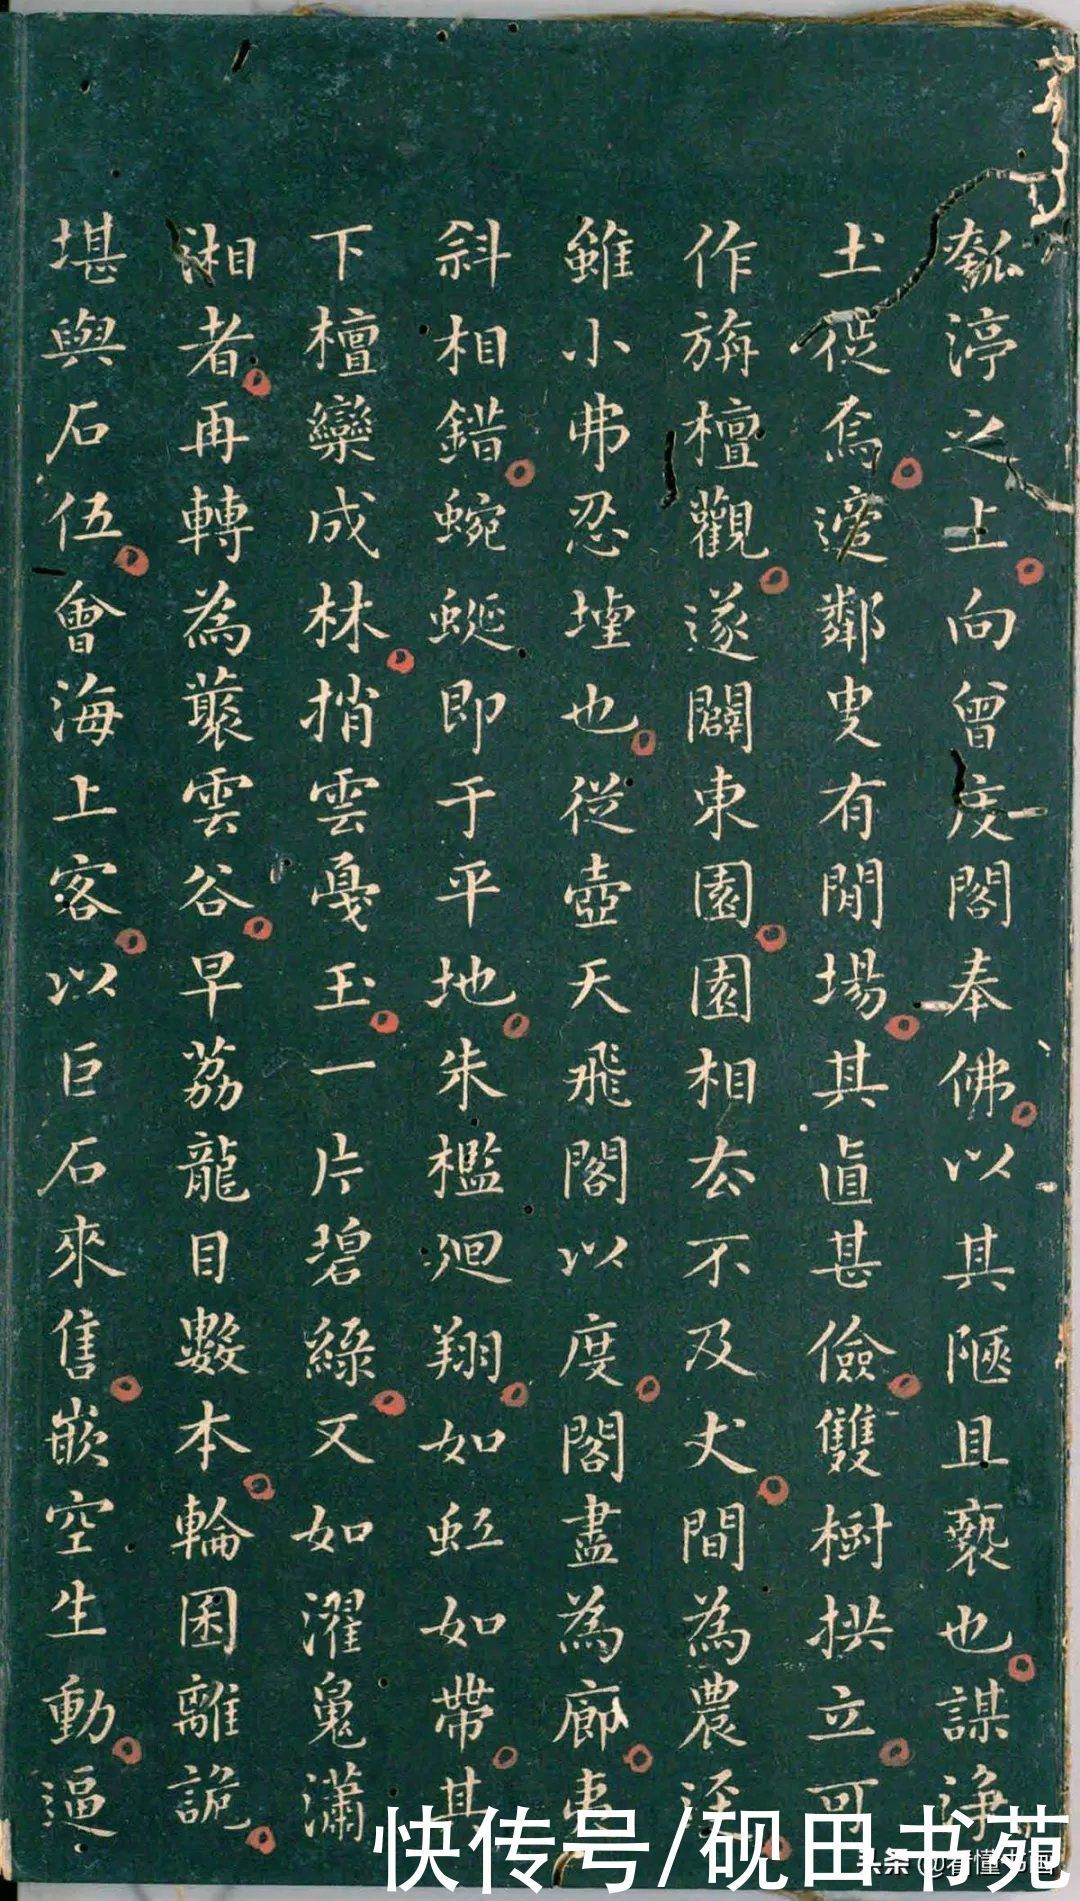 瓠渟之上向曾庋閣奉佛以其陋且褻也謀淨
土從焉邃鄰叟有閒場其直甚儉雙樹拱立可
作旃檀觀遂闢東園園相去不及丈間為農
雖小弗忍堙也從壺天飛閣以度閣盡為廊
斜相錯蜿蜒即于平地朱檻迴翔如虹如帶其
下檀欒成林捎雲戛玉一片碧綠又如濯鳧瀟
湘者再轉為叢雲谷早荔龍目數本輪囷離詭
堪與石伍會海上客以巨石來售嵌空生動逼
快传号/砚田书苑
头条@看懂书画